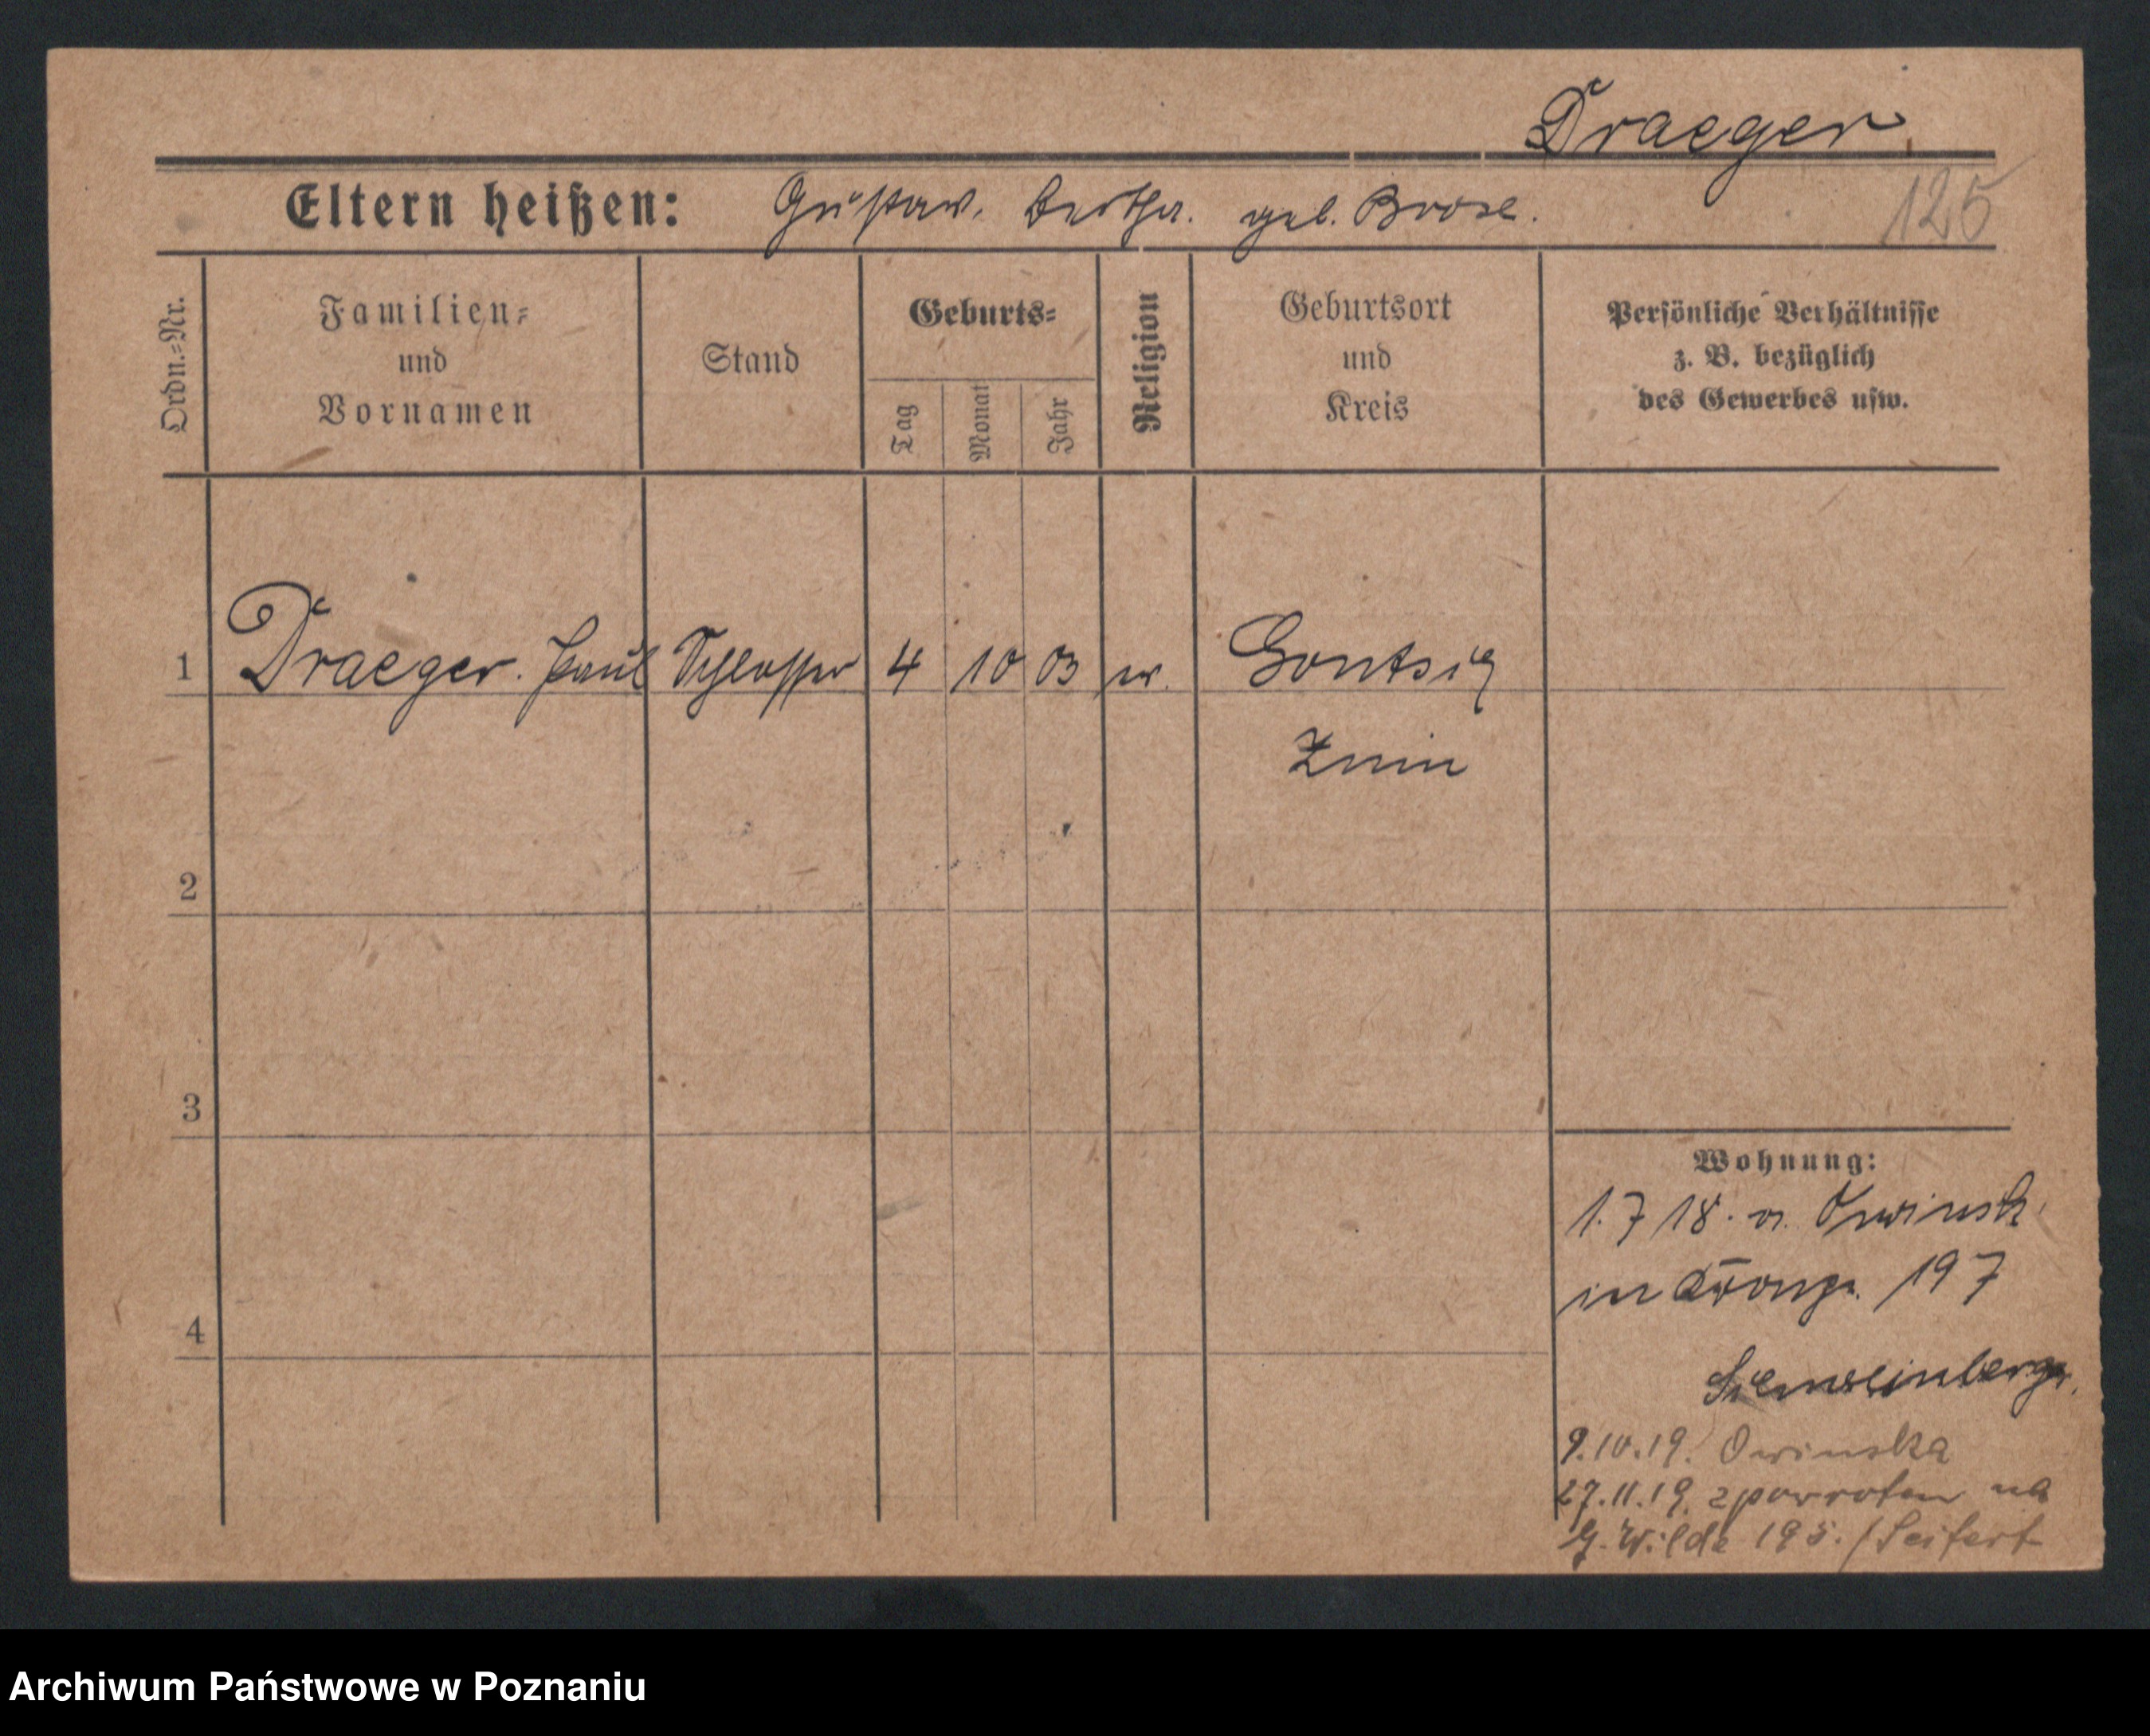 Draeger.
125
Eltern heißen: Gustav. Bertha. geb. Brose.
Ordn.=Nr.
Familien=
und
Vornamen
Stand
Geburts=
Tag
Monat
Jahr
Religion
Geburtsort
und
Kreis
Persönliche Verhältnisse
z. B. bezüglich
des Gewerbes usw.
1 Draeger. Paul Schlosser 4 10 03 ev. Gontsig
Znin
2
3
4
Wohnung:
1. 7 18. v. Owinsk.
in 197
9.10.19. Owinska
27.11.19. zpowrotem na
G. Wilda 195. / Seifert
Archiwum Państwowe w Poznaniu